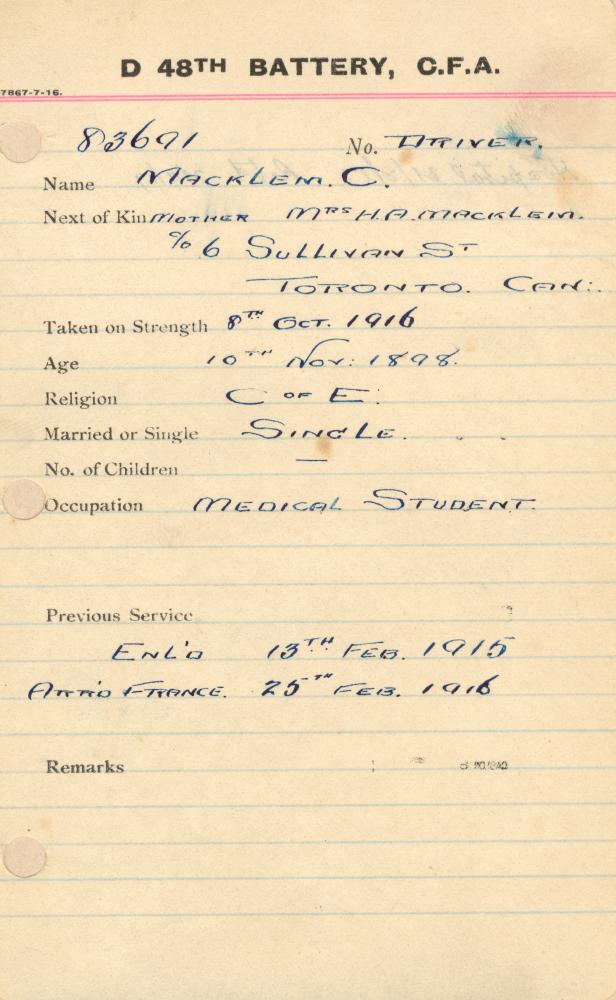 D 48TH BATTERY, C.F.A.
7867-7-16.
83691 No. DRIVER.
Name MACKLEM. C.
Next of Kin MOTHER MRS H.A. MACKLEM.
c/o 6 SULLIVAN ST
TORONTO. CAN:.
Taken on Strength 8TH OCT. 1916
Age 10TH NOV: 1898.
Religion C OF E.
Married or Single SINGLE.
No. of Children —
Occupation MEDICAL STUDENT.
Previous Service
ENL'D 13TH FEB. 1915
ARR'D FRANCE. 25TH FEB. 1916
Remarks